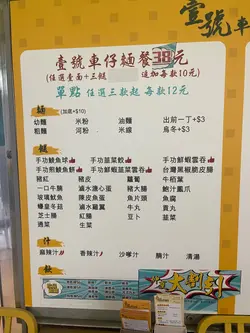 壹號車
壹號車仔麵餐38元
(任選壹面+三餸 追加每款10元)
單點 任選三款起 每款12元
麵 (加底+$10)
幼麵 米粉 油麵 出前一丁+$3
粗麵 河粉 米線 烏冬+$3
餸
手功鯪魚球 手功韮菜餃 手功鮮蝦雲吞
手功煎鯪魚餅 手功鮮蝦韮菜雲吞 台灣黑椒脆皮腸
豬紅 豬皮 蘿蔔 牛栢葉
一口牛腸 滷水溏心蛋 豬大腸 鮑汁鳳爪
玻璃魷魚 滷水雞翼 魚片頭 魚腐
蠔皇冬菇 牛丸 貢丸
芝士腸 紅腸 豆卜 韮菜
通菜 生菜
汁
麻辣汁 香辣汁 沙嗲汁 腩汁 清湯
飲